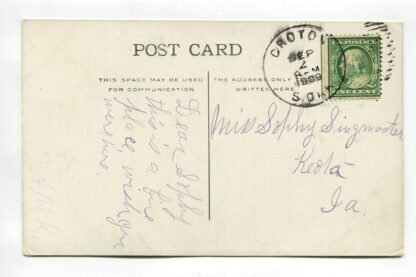 POST CARD
THIS SPACE MAY BE USED
FOR COMMUNICATION
THE ADDRESS ONLY
WRITTEN HERE
CROTON
SEP
2
M
1909
S.DAK
U.S. POSTAGE
ONE CENT
Dear Sophy
this is a fine
place wish you
were here.
Miss Sophy Singmaster
Keota
Ia.